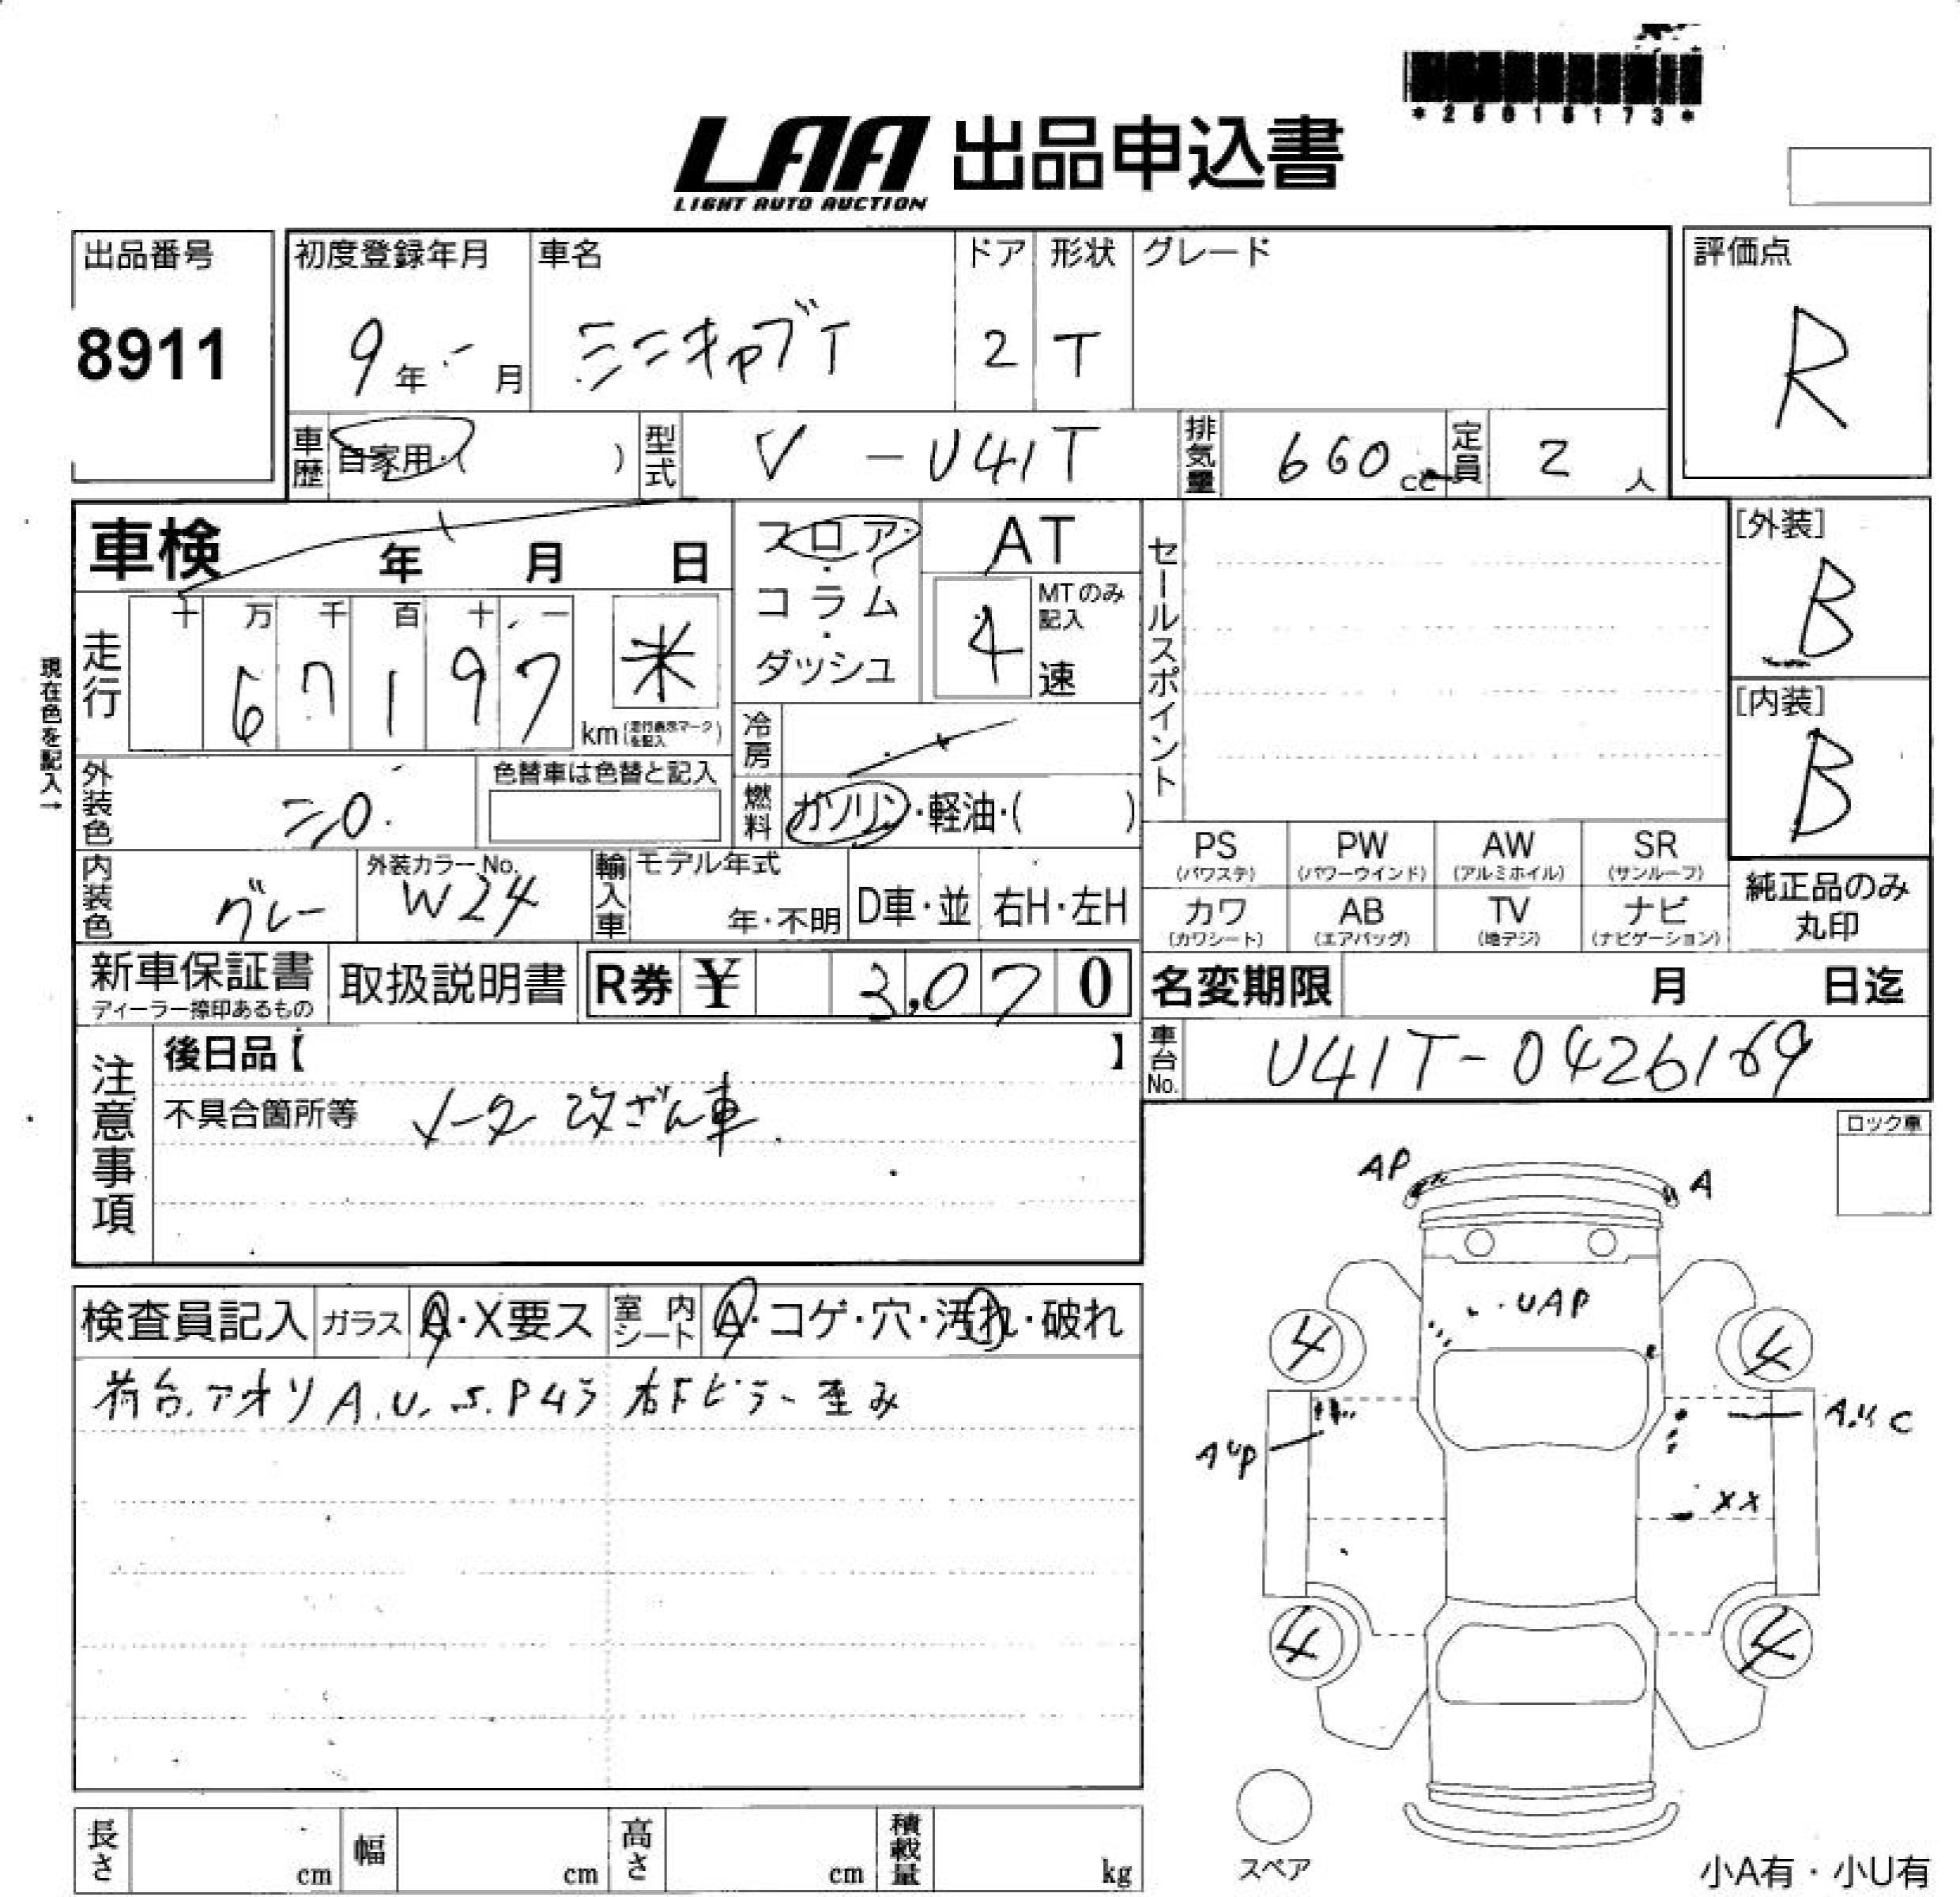 *25015173*
LAA 出品申込書
LIGHT AUTO AUCTION
出品番号
8911
初度登録年月
9年 - 月
車名
ミニキャブT
ドア
2
形状
T
グレード
評価点
R
車歴 自家用・( )
型式 V - U41T
排気量 660 cc
定員 2 人
車検 年 月 日
フロア・コラム・ダッシュ
AT
MTのみ記入
4 速
セールスポイント
[外装]
B
[内装]
B
現在色を記入→
走行 十 万 千 百 十 一
6 7 1 9 7 km (走行表示マークを記入) ＊
冷房
燃料 ガソリン・軽油・( )
外装色 シロ
色替車は色替と記入
内装色 グレー
外装カラーNo. W24
輸入車 モデル年式 年・不明 D車・並 右H・左H
PS (パワステ) PW (パワーウインド) AW (アルミホイル) SR (サンルーフ)
カワ (カワシート) AB (エアバッグ) TV (地デジ) ナビ (ナビゲーション)
純正品のみ丸印
新車保証書
ディーラー捺印あるもの
取扱説明書
R券 ¥ 3,070
名変期限 月 日迄
車台No. U41T-0426169
注意事項
後日品【 】
不具合箇所等 メータ改ざん車
ロック車
検査員記入 ガラス A・X要ス 室内シート A・コゲ・穴・汚れ・破れ
荷台.アオリ A.U.S.P43 右Fピラー歪み
AP A
・UAP
4 4
AUP
XX
4 4
スペア
長さ cm 幅 cm 高さ cm 積載量 kg
小A有・小U有